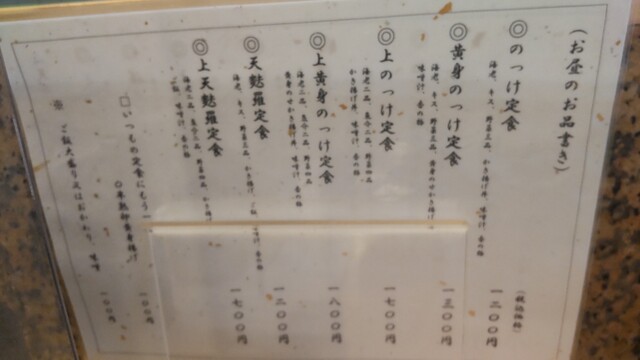 （お昼のお品書き）
（税込価格）
◎のっけ定食 一二〇〇円
海老、キス、野菜三品、かき揚げ丼、味噌汁、香の物
◎黄身のっけ定食 一三〇〇円
海老、キス、野菜三品、黄身のせかき揚げ丼、味噌汁、香の物
◎上のっけ定食 一七〇〇円
海老二品、魚介二品、野菜四品
かき揚げ丼、味噌汁、香の物
◎上黄身のっけ定食 一八〇〇円
海老二品、魚介二品、野菜四品
黄身のせかき揚げ丼、味噌汁、香の物
◎天麩羅定食 一二〇〇円
海老、キス、野菜三品、かき揚げ、ご飯、味噌汁、香の物
◎上天麩羅定食 一七〇〇円
海老二品、魚介二品、野菜四品、かき揚げ
ご飯、味噌汁、香の物
□いつもの定食にもう一
〇半熟卵黄身揚げ 一〇〇円
※ ご飯大盛り又はおかわり、味噌 一〇〇円